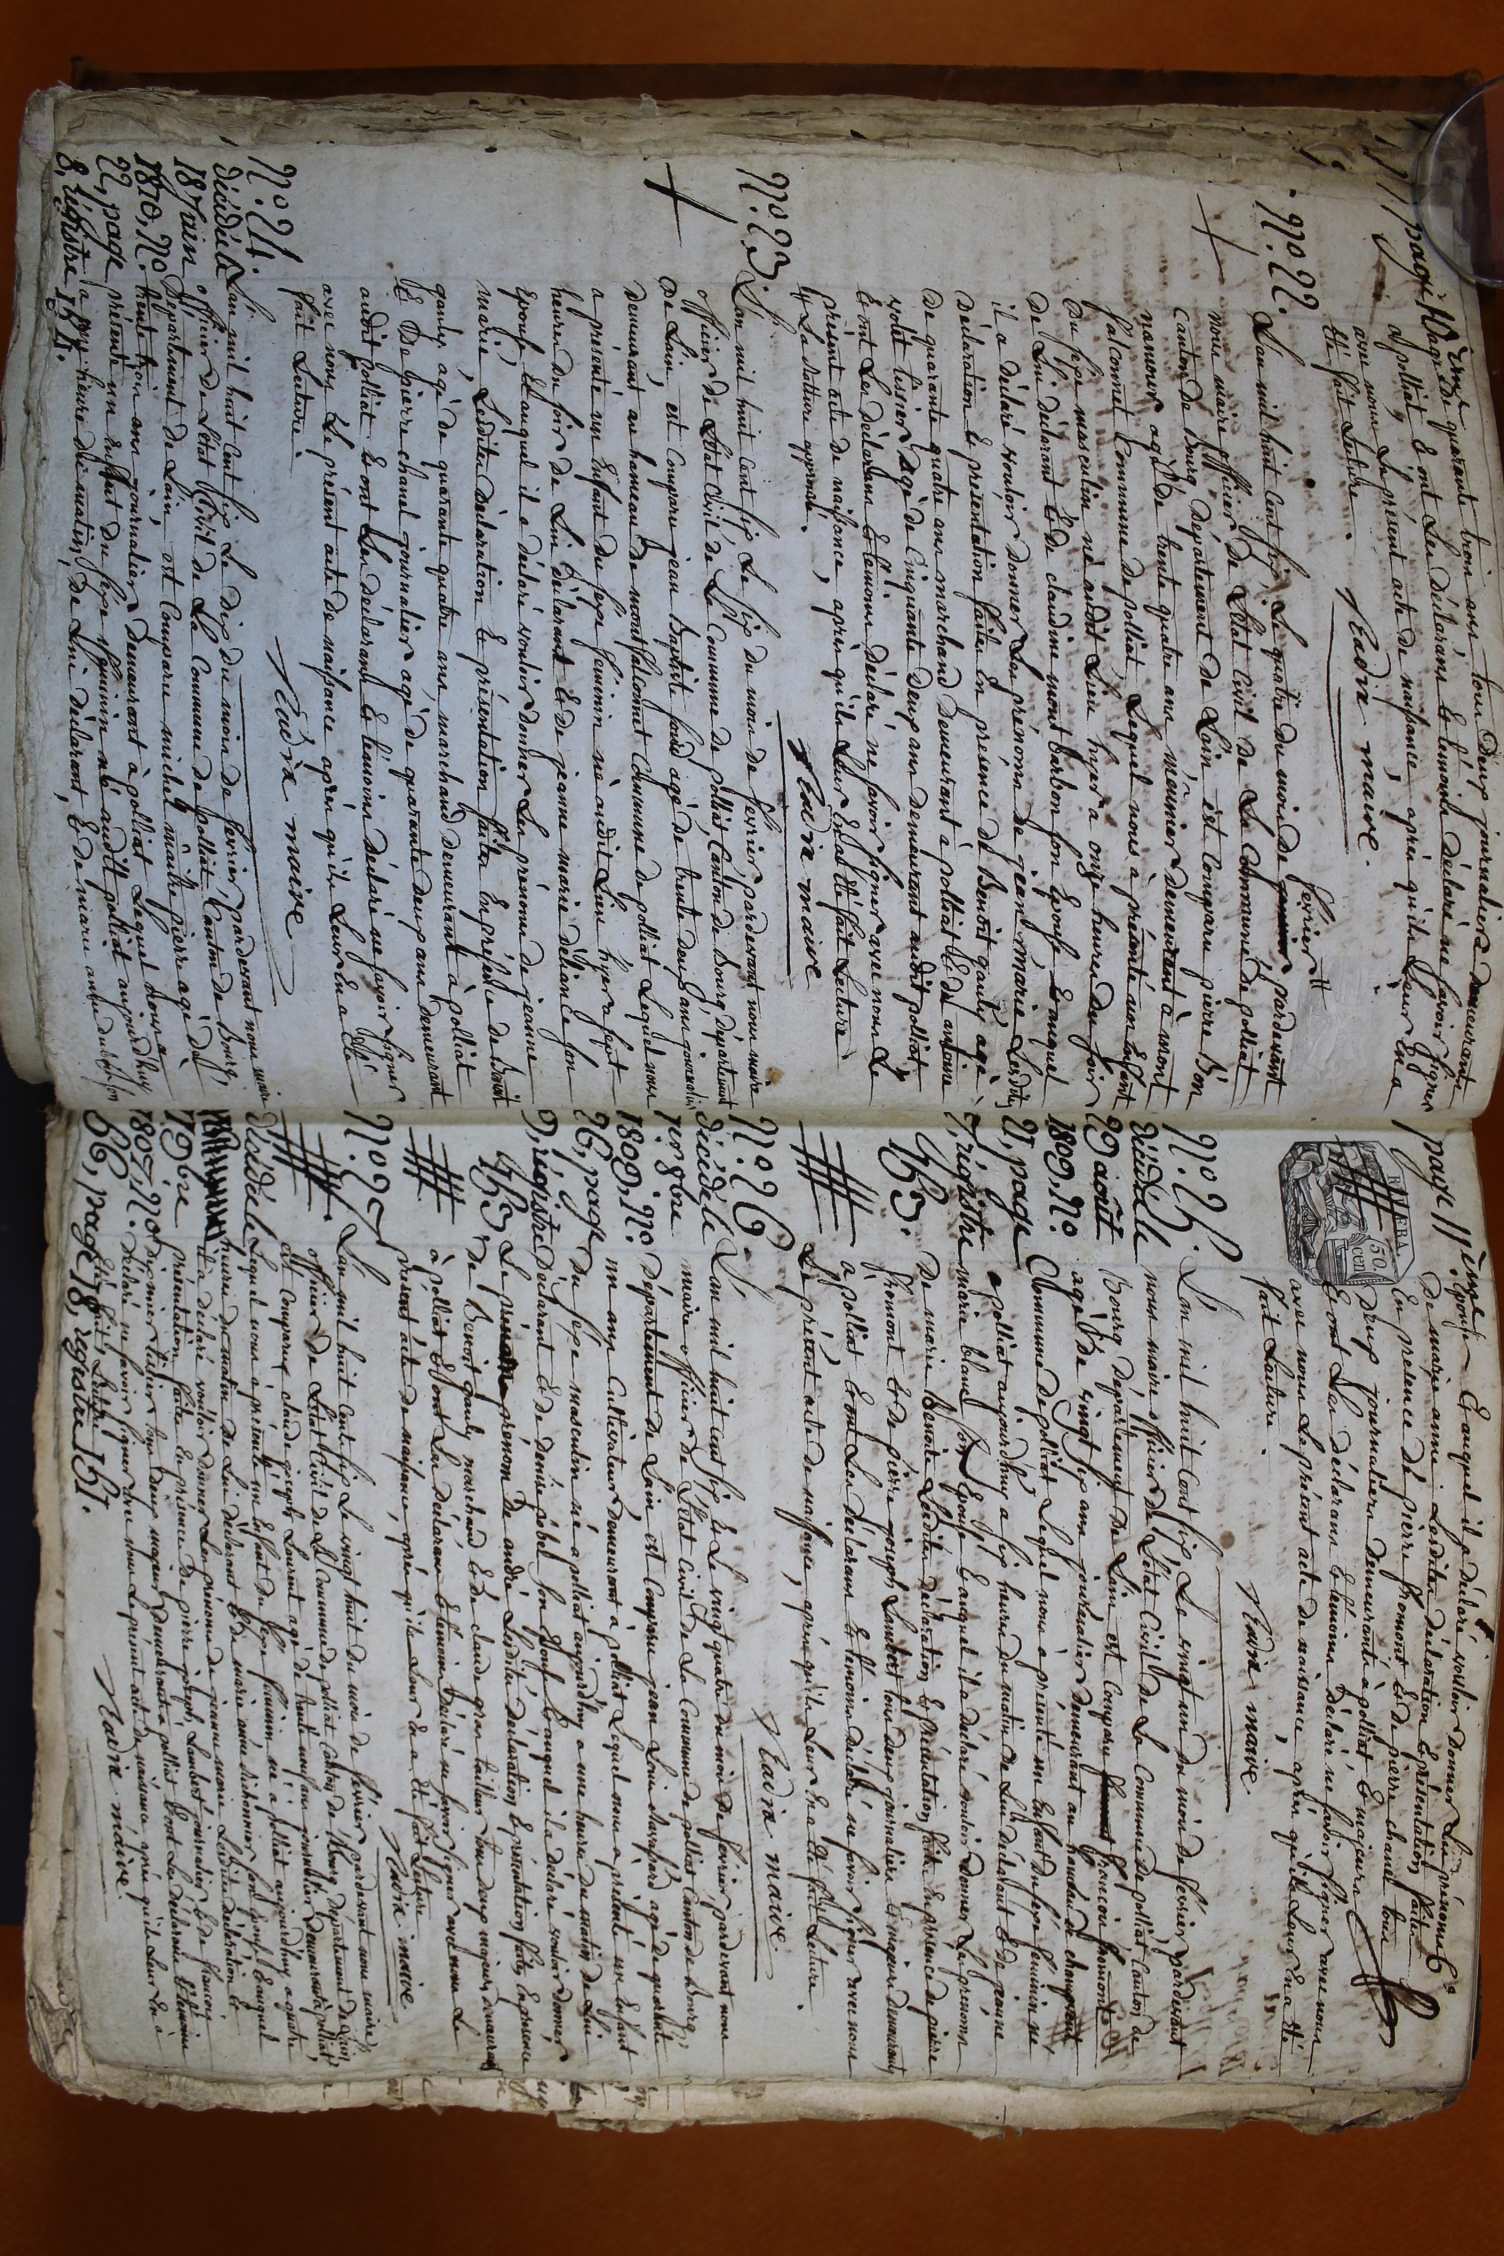 page 10ème
agé de quarante trois ans tous deux journaliers demeurants
à polliat Et ont Les déclarans Et témoins déclaré ne savoir signer
avec nous Le présent acte de naissance, après qu'ils Leur En a
Eté fait Lecture.
Nadix maire.
No. 22.
L'an mil huit Cent six, Le quatre du mois de fevrier pardevant
nous maire officier de L'état Civil de La Commune de polliat
Canton de Bourg Département de L'ain, est Comparu pierre
agé de trente quatre ans meunier demeurant à mont
falconnet Commune de polliat, Lequel nous à présenté un Enfant
du sexe masculin né audit Lieu hyer a onze heures du soir
De Lui déclarant Et de claudine mont barbon son Epouse Et auquel
il a déclaré vouloir donner Les prénoms de jean marie, Lesdites
Déclaration Et présentation faites En présence de Benoit gauly agé
De quarante quatre ans marchand Demeurant à polliat Et de antoine
agé de Cinquante deux ans demeurant audit polliat
Et ont Les déclarans Et témoins déclaré ne savoir signer avec nous Le
présent acte de naissance, après qu'ils Leur En a Eté fait Lecture
Nadix maire
No. 23
L'an mil huit cent six Le six du mois de fevrier pardevant nous maire
officier de L'état Civil de La Commune de polliat Canton de Bourg, département
De L'ain, est Comparu jean Baptiste agé de trente deux ans journalier
demeurant au hameau de montfalconnet Commune de polliat Lequel nous
a présenté un Enfant du sexe feminin né audit Lieu hyer a sept
heures du soir de Lui déclarant Et de jeanne marie son
Epouse, Et auquel il a déclaré vouloir donner Les prénoms de jeanne
marie, Lesdites déclaration Et présentation faites En présence de Benoit
gauly agé de quarante quatre ans marchand demeurant à polliat
Et De pierre chanel journalier agé de quarante deux ans demeurant
audit polliat Et ont Les déclarant Et témoins déclaré ne savoir signer
avec nous Le présent acte de naissance après qu'ils Leur En a Eté
fait Lecture
Nadix maire
No. 24.
décédé le
18 juin
1810, No.
22, page
8, registre 154.
L'an mil huit Cent six Le dix du mois de fevrier, pardevant nous maire
officier de L'état Civil de La Commune de polliat Canton de Bourg,
Département de L'ain, est Comparu michel maître pierre agé de
trente trois ans journalier Demeurant à polliat Lequel nous a
présenté un Enfant du sexe feminin né audit polliat aujourdhuy
a heures du matin, de Lui déclarant Et de marie son
page 11ème
Epouse Et auquel il a déclaré vouloir donner Les prénoms
De marie anne. Lesdites déclaration Et présentation faites
En présence De pierre fromont Et de pierre chanel tous
Deux journaliers demeurants à polliat Et majeurs
Et ont Les déclarans Et témoins déclaré ne savoir signer avec nous
avec nous Le présent acte de naissance, après qu'ils Leur En a Eté
fait Lecture.
Nadix maire
50 cen
No. 25.
décédé le
29 août
1809, No.
21, page
7, registre
153.
L'an mil huit Cent six Le vingt un du mois de fevrier, pardevant
nous maire officier de L'état Civil de La Commune de polliat Canton de
Bourg Département de L'ain est Comparu françois
agé De vingt six ans journalier demeurant au hameau de
Commune de polliat Lequel nous à présenté un Enfant du sexe feminin né
a polliat aujourd'huy a six heures du matin de Lui déclarant Et de jeanne
marie blanc son Epouse Et auquel il a déclaré vouloir donner Les prenoms
De marie Benoite Lesdites déclaration Et présentation faites En présence de pierre
fromont Et de pierre joseph Lambert tous deux journaliers Et majeurs demeurants
a polliat Et ont Les déclarans Et témoins déclaré ne savoir signer avec nous
Le présent acte de naissance, après qu'ils Leur En a Eté fait Lecture.
Nadix maire.
No. 26.
décédé le
1er 8bre
1809, No.
26, page
9, régistre
153
L'an mil huit cent six Et Le vingt quatre du mois de fevrier pardevant nous
maire officier de L'état civil de La Commune de polliat Canton de Bourg,
département de L'ain est Comparu jean Louis agé de quarante
un ans Cultivateur demeurant à polliat Lequel nous a présenté un Enfant
du sexe masculin né a polliat aujourd'huy a une heure du matin de Lui
déclarant Et de denise son Epouse Et auquel il a déclaré vouloir donner
Le prénom de andré Lesdites déclaration Et présentation faites En présence
de Benoit gauly marchand Et de claude tailleur tous deux majeurs demeurant
à polliat Et ont Les déclarans Et témoins déclaré ne savoir signer avec nous Le
présent acte de naissance, après qu'ils Leur En a Eté fait Lecture
Nadix maire
No. 27
décédé le
19bre
1807, No.
66, page 18, régistre 151.
L'an mil huit Cent six Le vingt huit du mois de fevrier pardevant nous maire
officier de L'état Civil de La Commune de polliat Canton de Bourg Département de L'ain
est Comparu claude joseph Laurent agé de trente ans journalier demeurant à polliat,
Lequel nous a présenté un Enfant du sexe feminin né a polliat aujourd'huy a quatre
heures du matin de Lui déclarant Et de marie anne son Epouse Et auquel
il a déclaré vouloir donner Les prénoms de jeanne marie Lesdites déclaration Et
présentation faites En présence De pierre joseph Lambert journalier Et de françois
tissier tous deux majeurs Demeurants à polliat Et ont Les déclarans Et témoins
déclaré ne savoir signer avec nous Le présent acte de naissance après qu'ils Leur En à
Eté fait Lecture
Nadix maire